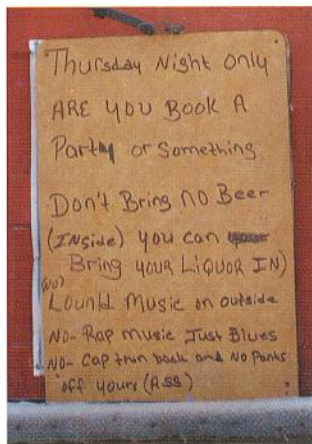 Thursday Night only
ARE YOU BOOK A
Party or Something
Don't Bring NO Beer
(INside) you can
Bring YOUR LiQUOR IN)
(NO)
Lound Music on outside
NO- Rap music Just Blues
NO- Cap trun back and No Pants
off yours (ASS)